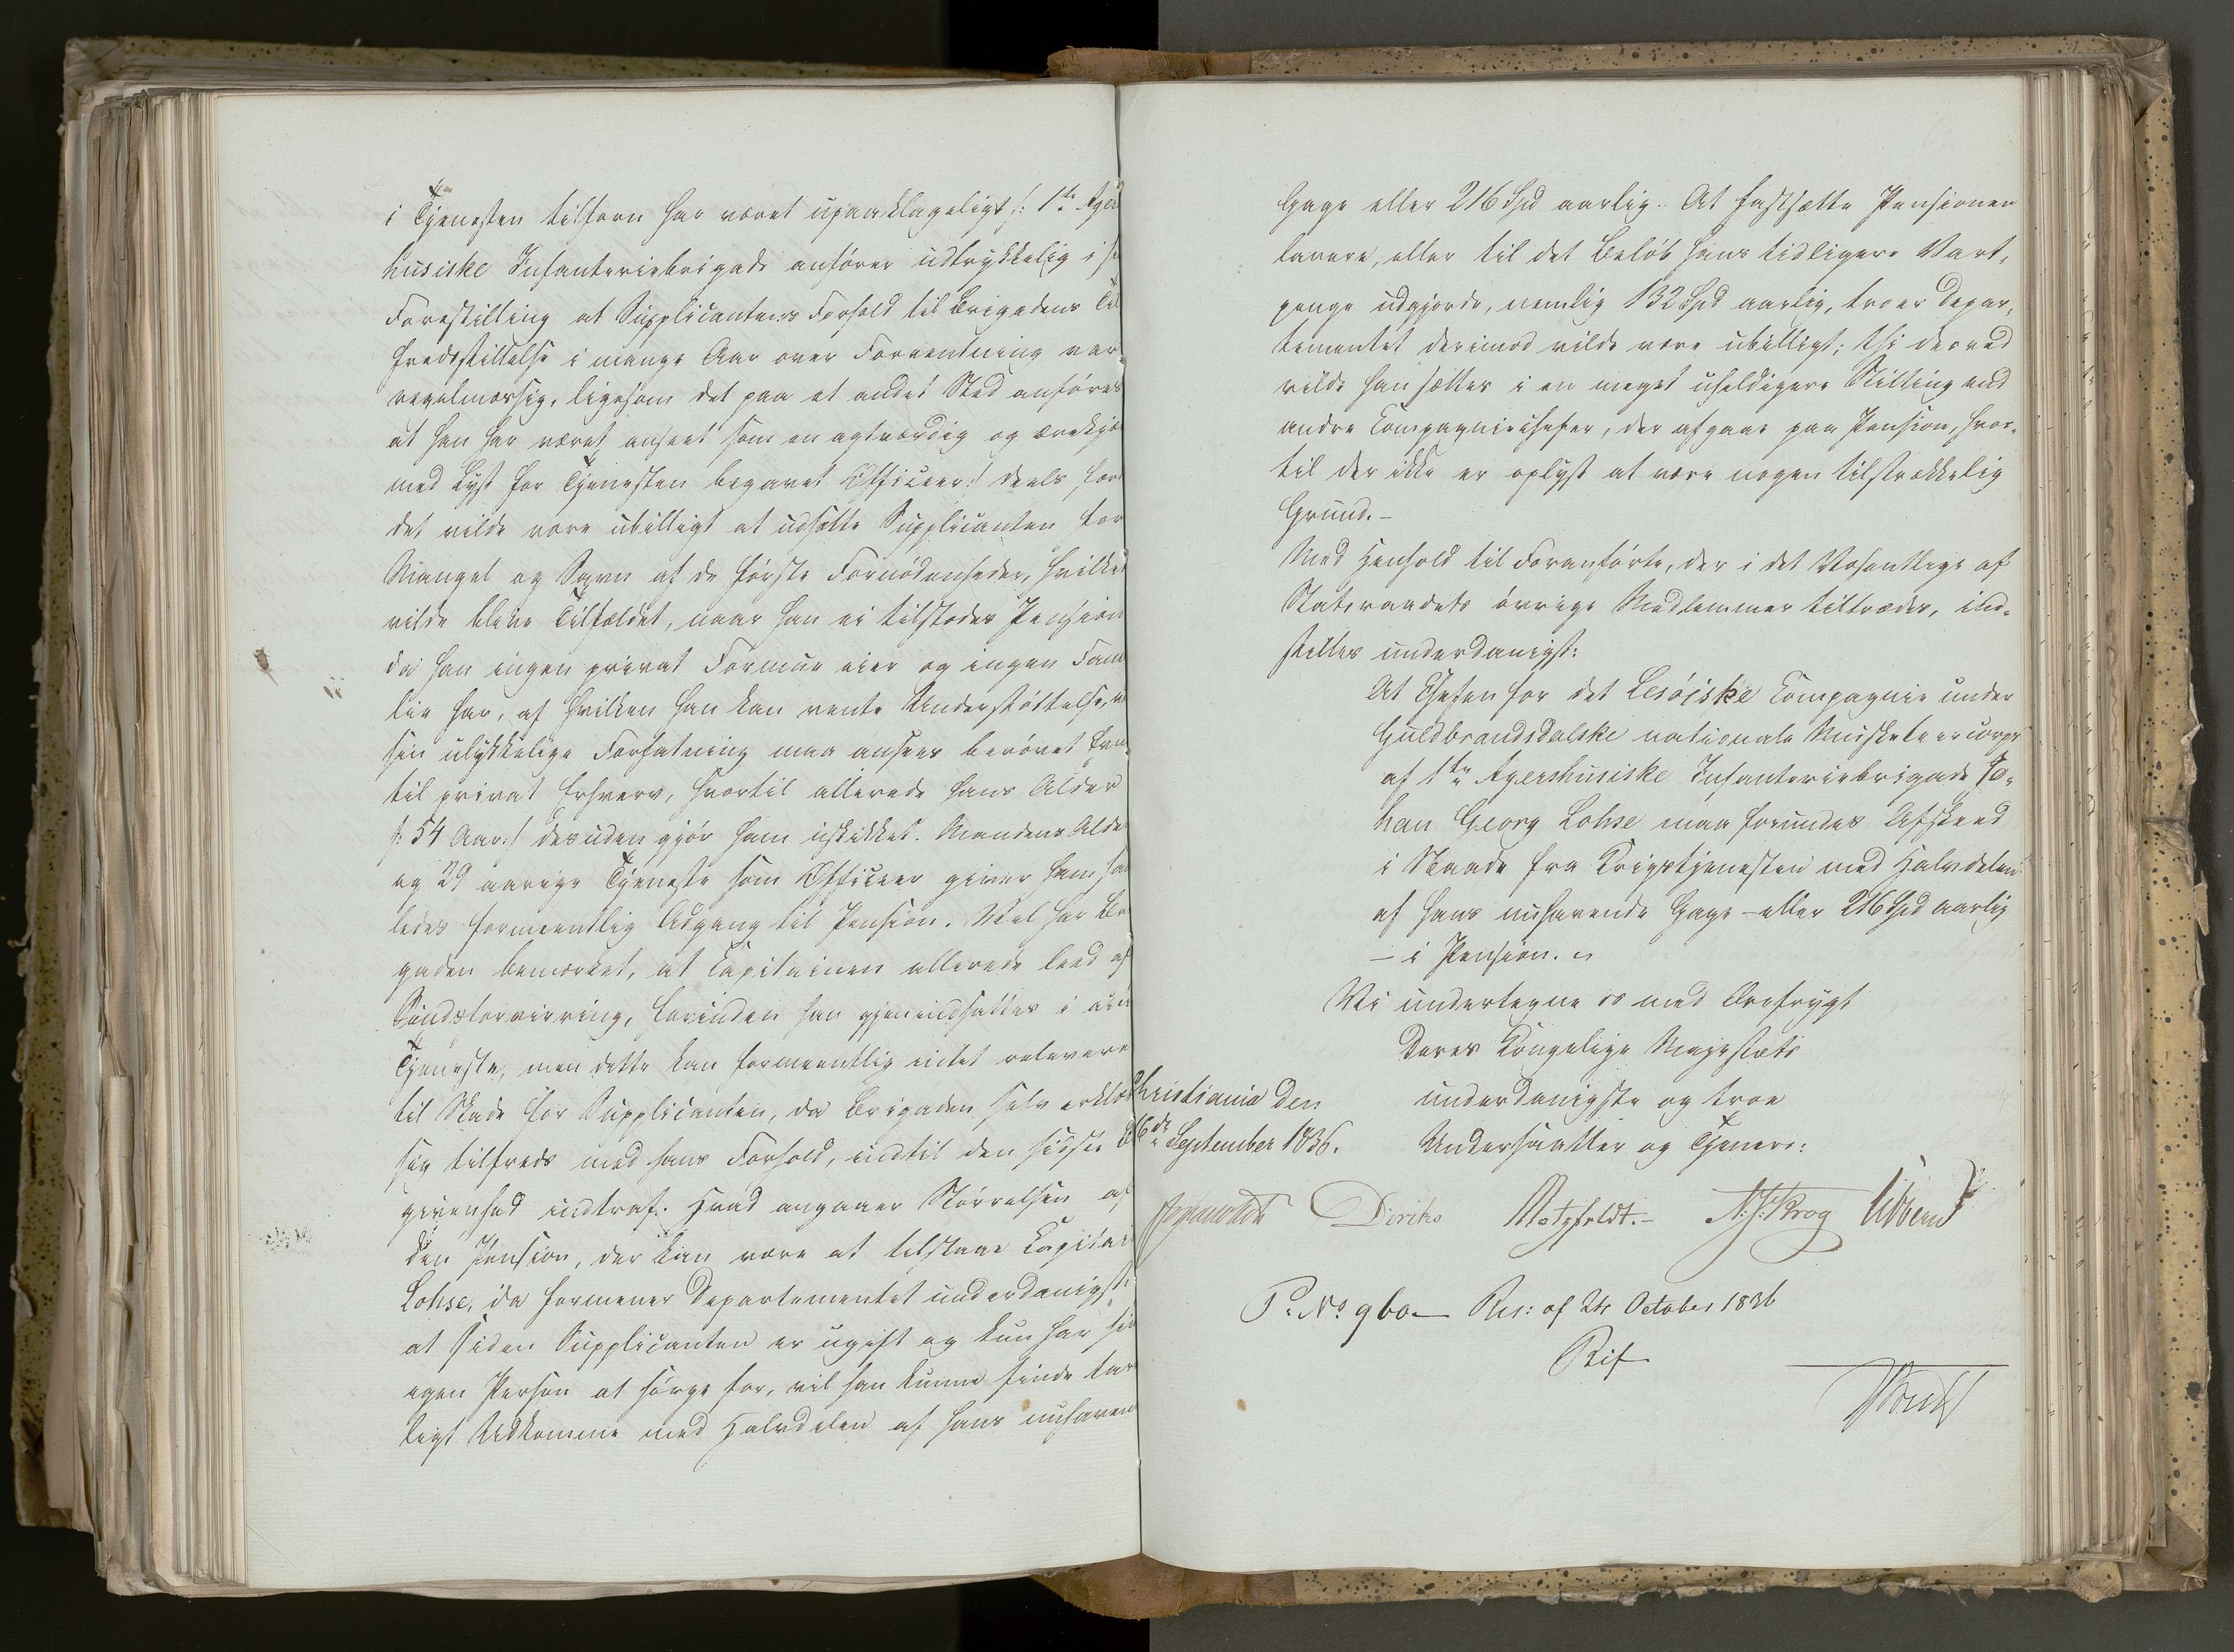 i Tjenesten tilforn har været upaaklageligt /: 1ste Ager
husiske Infanteriebrigade anfører udtrykkelig i si
Forestilling at Supplicantens Forhold til Brigadens Til
fredsstillelse i mange Aar over Forventning var
regelmæssig, ligesom det paa et andet Sted anføres
at han har været anseet som en agtværdig og ærekjæ
med Lyst for Tjenesten begavet Officeer :/ deels fordi
det vilde være ubilligt at udsætte Supplicanten for
Mangel og Savn af de første Fornødenheder, hvilket
vilde blive Tilfældet, naar han ei tilstodes Pension
da han ingen privat Formue eier og ingen Fami
lie har, af hvilken han kan vente Understøttelse, ved
sin ulykkelige Forfatning maa ansees berøvet Evne
til privat Erhverv, hvortil allerede hans Alder
/: 54 Aar :/ desuden gjør ham uskikket. Mandens Alde
og 29 aarige Tjeneste som Officeer giver ham saa
ledes formeentlig Adgang til Pension. Vel har Bri
gaden bemærket, at Capitainen allerede leed af
Sindsforvirring, forinden han gjenindsattes i
Tjeneste, men dette kan formeentlig intet relevere
til Skade for Supplicanten, da Brigaden selv erklær
sig tilfreds med hans Forhold, indtil den sidste Be
givenhed indtraf. Hvad angaaer Størrelsen af
den Pension, der kan være at tilstaae Capitai
Lohse, da formener Departementet underdanigst:
at siden Supplicanten er ugift og kun har sin
egen Person at sørge for, vil han kunne finde tar
ligt Udkomme med Halvdelen af hans nuhaven
Gage eller 216 Spd aarlig. At fastsætte Pensionen
lavere, eller til det Beløb hans tidligere Vart-
penge udgjorde, nemlig 132 Spd aarlig, troer Depar-
tementet derimod vilde være ubilligt; thi derved
vilde han sættes i en meget uheldigere Stilling end
andre Compagniechefer, der afgaae paa Pension, hvor-
til der ikke er oplyst at være nogen tilstrækkelig
Grund.-
Med Henhold til Foranførte, der i det Væsentlige af
Statsraadets øvrige Medlemmer tiltrædes, ind-
stilles underdanigst:
At Chefen for det Lesøiske Compagnie under
Guldbrandsdalske nationale Musketeercorps
af 1ste Agershusiske Infanteriebrigade Jo-
han Georg Lohse maa forundes Afskeed
i Naade fra Krigstjenesten med Halvdelen
af hans nuhavende Gage - eller 216 Spd aarlig
- i Pension.
Vi undertegne os med Ærefrygt
Deres Kongelige Majestæts
Christiania den underdanigste og troe
16de September 1836. Undersaatter og Tjenere:
Diriks Motzfeldt.- N. J. Krog Vibe
P. No 960 - Res: af 24 October 1836